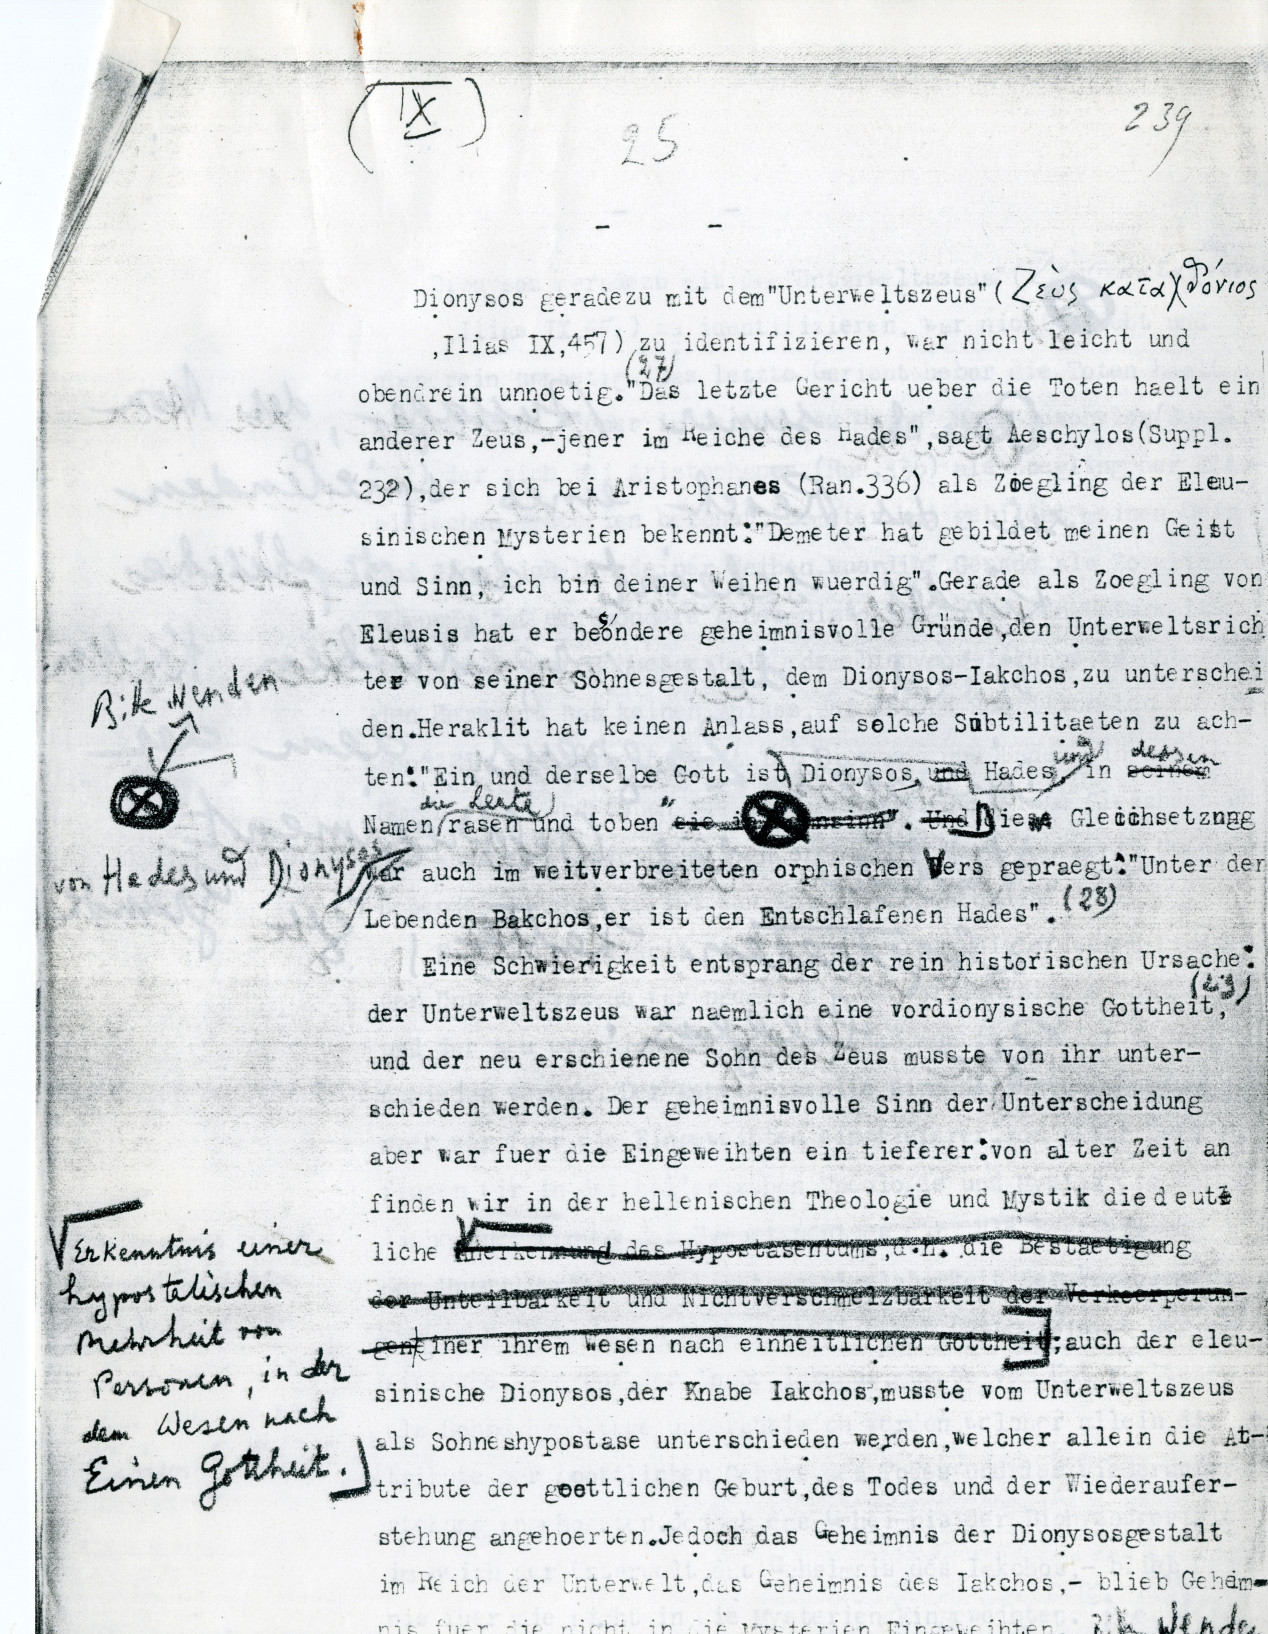 (IX)
25
239
- -
Dionysos geradezu mit dem"Unterweltszeus"(Ζεὺς καταχθόνιος
,Ilias IX,457) zu identifizieren, war nicht leicht und
(27)
obendrein unnoetig."Das letzte Gericht ueber die Toten haelt ein
anderer Zeus,-jener im Reiche des Hades",sagt Aeschylos(Suppl.
232),der sich bei Aristophanes (Ran.336) als Zoegling der Eleu-
sinischen Mysterien bekennt:"Demeter hat gebildet meinen Geist
und Sinn, ich bin deiner Weihen wuerdig".Gerade als Zoegling von
Eleusis hat er besondere geheimnisvolle Gründe,den Unterweltsrich
ter von seiner Sohnesgestalt, dem Dionysos-Iakchos,zu unterschei
den.Heraklit hat keinen Anlass,auf solche Subtilitaeten zu ach-
Bitte wenden
und dessen
ten:"Ein und derselbe Gott ist Dionysos, und Hades, in seinem
die Leute
Namen rasen und toben" sie im". Und Diese Gleichsetzung
von Hades und Dionysos
war auch im weitverbreiteten orphischen Vers gepraegt:"Unter der
Lebenden Bakchos,er ist den Entschlafenen Hades".(28)
Eine Schwierigkeit entsprang der rein historischen Ursache:
(29)
der Unterweltszeus war naemlich eine vordionysische Gottheit,
und der neu erschienene Sohn des Zeus musste von ihr unter-
schieden werden. Der geheimnisvolle Sinn der Unterscheidung
aber war fuer die Eingeweihten ein tieferer:von alter Zeit an
finden wir in der hellenischen Theologie und Mystik die deut-
liche Anerkennung des Hypostasentums,d.h. die Bestaetigung
der Unteilbarkeit und Nichtverschmelzbarkeit der Verkoerperun-
gen einer ihrem Wesen nach einheitlichen Gottheit;auch der eleu-
Erkenntnis einer
hypostatischen
Mehrheit von
Personen, in der
dem Wesen nach
Einen Gottheit.
sinische Dionysos,der Knabe Iakchos,musste vom Unterweltszeus
als Sohneshypostase unterschieden werden,welcher allein die At-
tribute der goettlichen Geburt,des Todes und der Wiederaufer-
stehung angehoerten.Jedoch das Geheimnis der Dionysosgestalt
im Reich der Unterwelt,das Geheimnis des Iakchos,- blieb Geheim-
nis fuer die nicht in die Mysterien Eingeweihten.